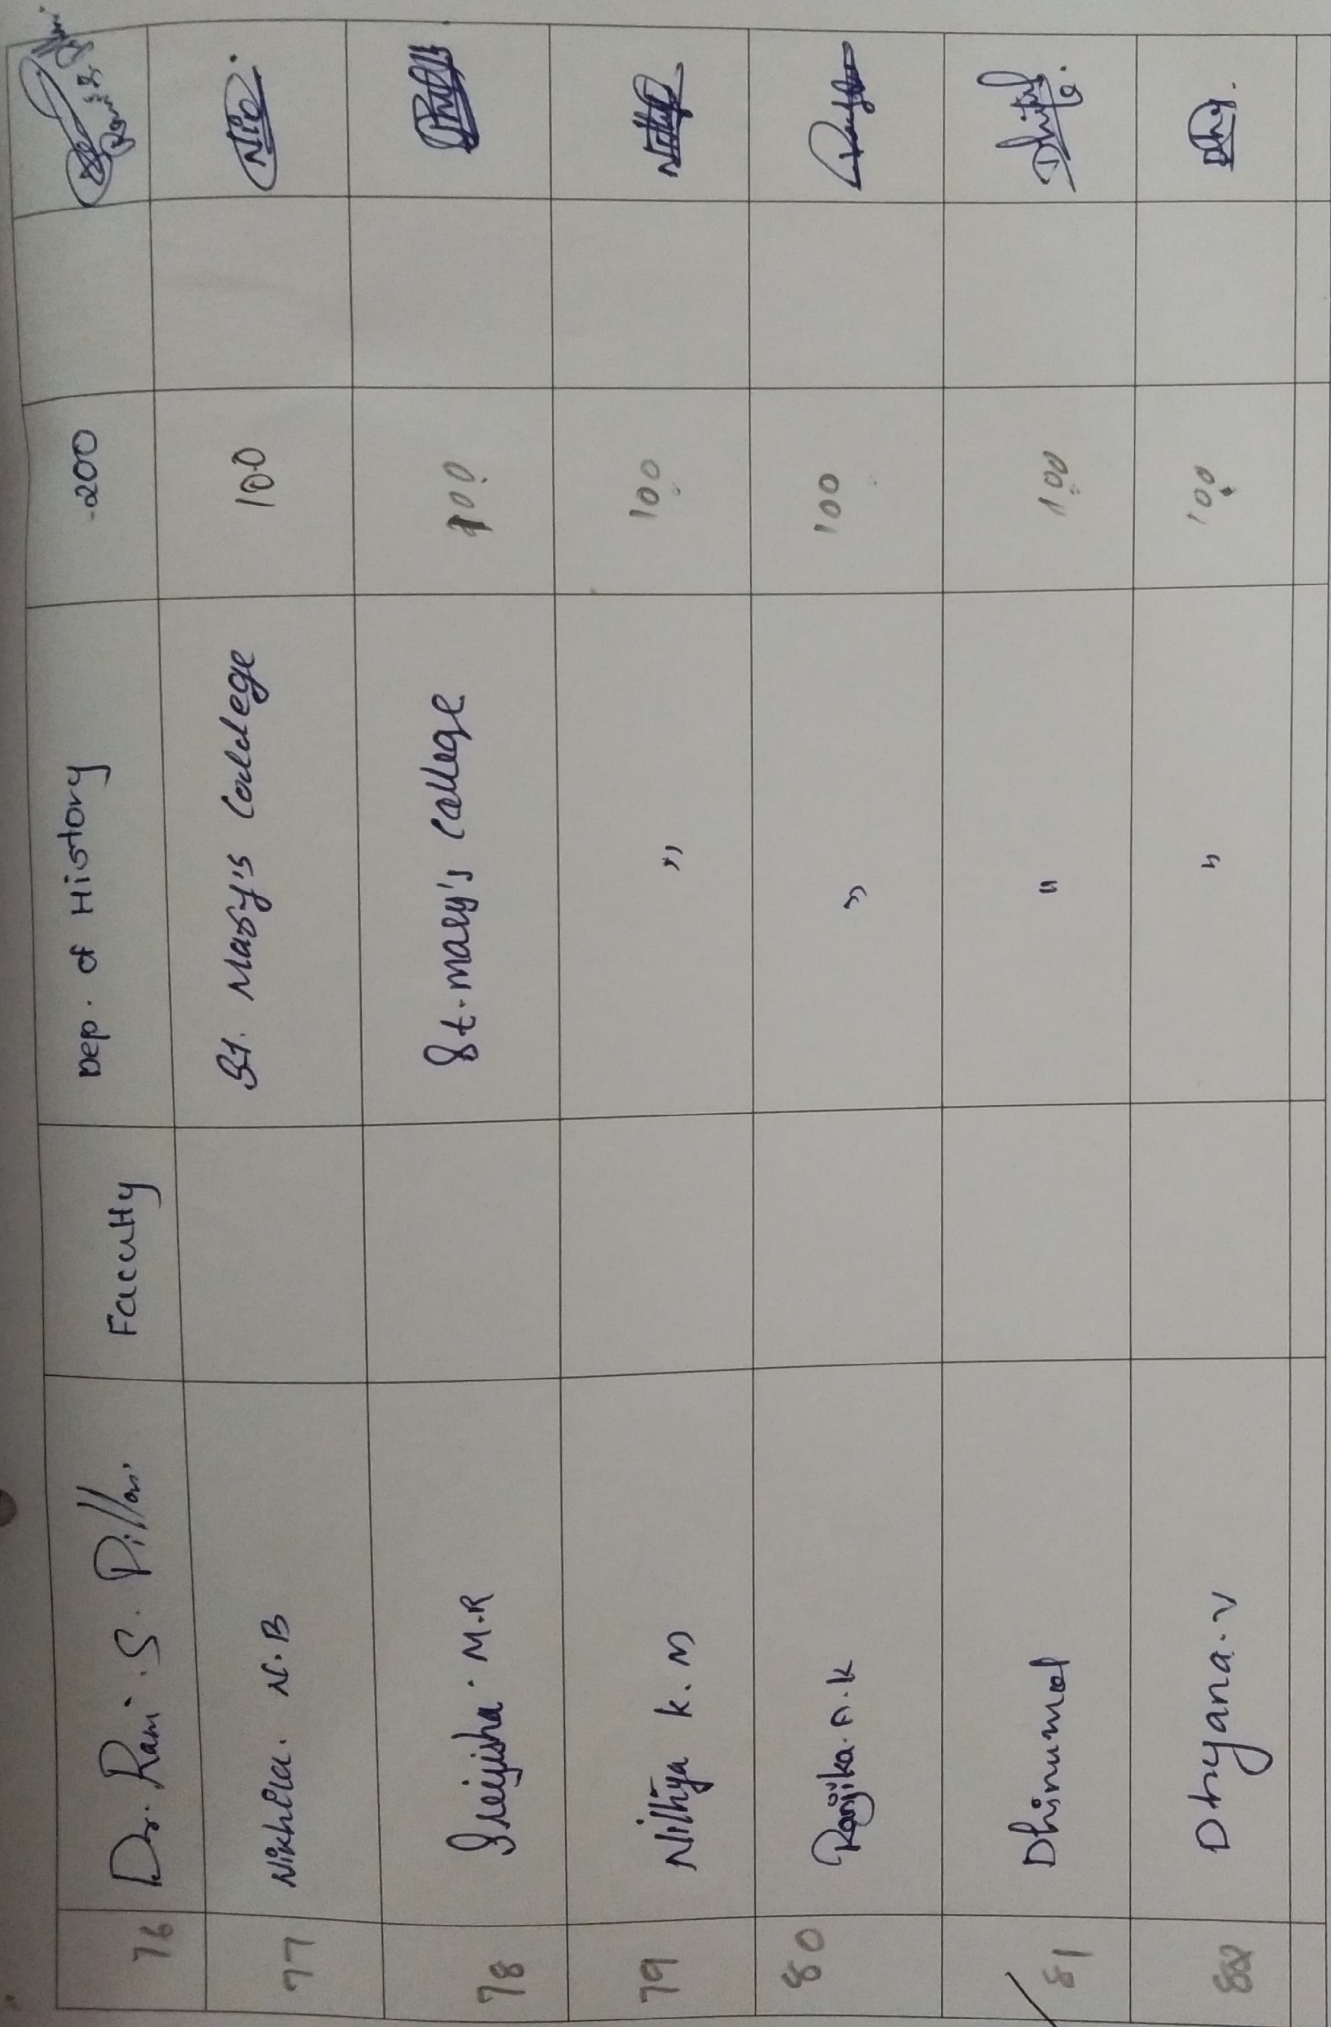 76 Dr. Rani. S. Pillai Faculty Dep. of History 200
77 Nikhila. N.B St. Mary's College 100
78 M.R St. mary's College 100
79 Nithya K.M " 100
80 " 100
81 " 100
82 Dhyana. V " 100